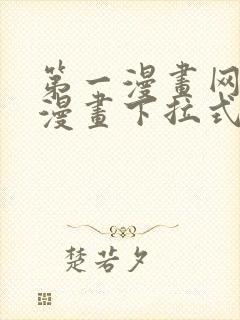 第一漫畫网
漫畫下拉式
楚若夕